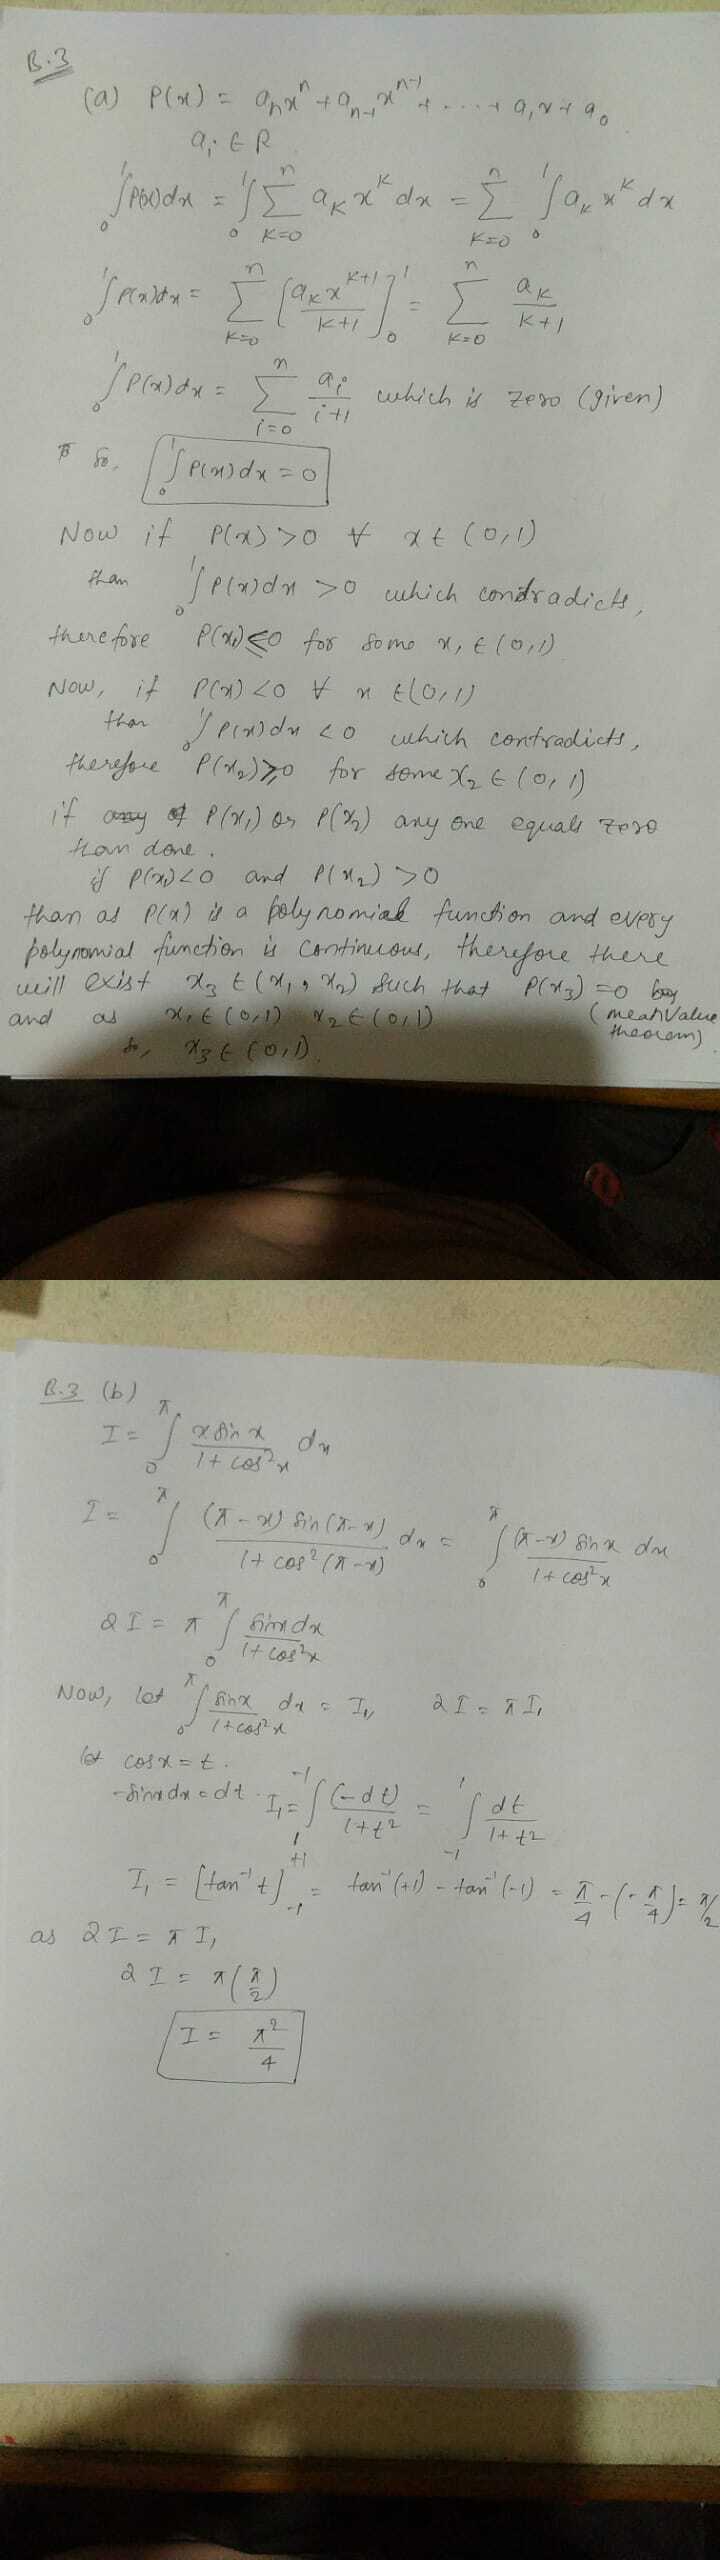 B.3
(a) P(x) = aₙxⁿ + aₙ₋₁xⁿ⁻¹ + .... + a₁x + a₀
aᵢ ∈ R
₀∫¹ P(x)dx = ₀∫¹ Σₖ₌₀ⁿ aₖ xᵏ dx = Σₖ₌₀ⁿ ₀∫¹ aₖ xᵏ dx
₀∫¹ P(x)dx = Σₖ₌₀ⁿ [aₖ xᵏ⁺¹/(k+1)]₀¹ = Σₖ₌₀ⁿ aₖ/(k+1)
₀∫¹ P(x)dx = Σᵢ₌₀ⁿ aᵢ/(i+1) which is zero (given)
So, ₀∫¹ P(x)dx = 0
Now if P(x) > 0 ∀ x ∈ (0,1)
than ₀∫¹ P(x)dx > 0 which contradicts,
therefore P(x₁) ≤ 0 for some x₁ ∈ (0,1)
Now, if P(x) < 0 ∀ x ∈ (0,1)
than ₀∫¹ P(x)dx < 0 which contradicts,
therefore P(x₂) ≥ 0 for some x₂ ∈ (0,1)
if any of P(x₁) or P(x₂) any one equals zero
than done.
if P(x₁) < 0 and P(x₂) > 0
than as P(x) is a polynomial function and every
polynomial function is continuous, therefore there
will exist x₃ ∈ (x₁, x₂) such that P(x₃) = 0 by
and as x₁ ∈ (0,1) x₂ ∈ (0,1) (mean value theorem)
so, x₃ ∈ (0,1).
B.3 (b)
I = ₀∫^π x sin x/(1 + cos²x) dx
I = ₀∫^π (π-x) sin(π-x)/(1 + cos²(π-x)) dx = ₀∫^π (π-x) sin x/(1 + cos²x) dx
2I = π ₀∫^π sinx dx/(1 + cos²x)
Now, let ₀∫^π sinx/(1+cos²x) dx = I₁, 2I = π I₁
let cosx = t.
-sinx dx = dt. I₁ = ₁∫⁻¹ (-dt)/(1+t²) = ₋₁∫¹ dt/(1+t²)
I₁ = [tan⁻¹ t]₋₁⁺¹ = tan⁻¹(+1) - tan⁻¹(-1) = π/4 - (-π/4) = π/2
as 2I = π I₁
2I = π(π/2)
I = π²/4